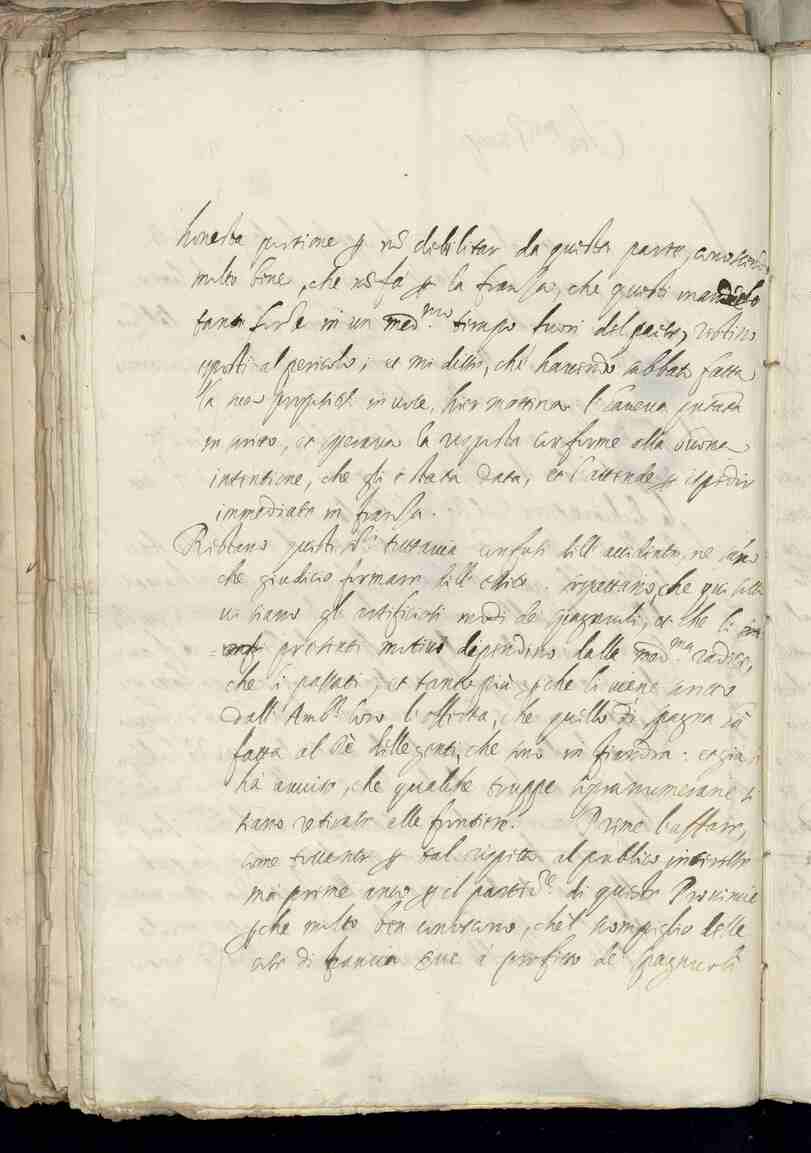 honesta portione per nõ debilitar da questa parte, conoscendo
molto bene, che nõ fa per la Franza, che questi mandando
tante forze in un med.mo tempo fuori del paese, restino
esposti al pericolo; et mi disse, che havendo sabbato fatta
la sua propositione in voce, hier mattina l'haveva portata
in scritto, et sperava la risposta conforme alla buona
intentione, che gli è stata data, et l'attende per espedir
immediate in Franza.
Restano questi ss.ri tuttavia confusi dell'accidente, ne sano
che giudicio formarsi dell' esito. sospettano, che qui sotto
vi siano gli artificiosi modi de Spagnuoli, et che li
presenti motivi dependino dalle med.me radici,
che li passati, et tanto più perche li viene scritto
dall'Amb.r loro l'offerta, che quello di Spagna hà
fatta al Rè delle genti, che sono in Fiandra: et già si
hà avviso, che qualche truppe soprannumerarie si
siano reticate alle frontiere. Preme l'affare,
come successo per tal rispetto al publico interesse
ma preme anco per il partic.re di queste Provincie
perche molto ben conoscono, che'l scompiglio delle
cose di Francia sue à profitto de Spagnuoli